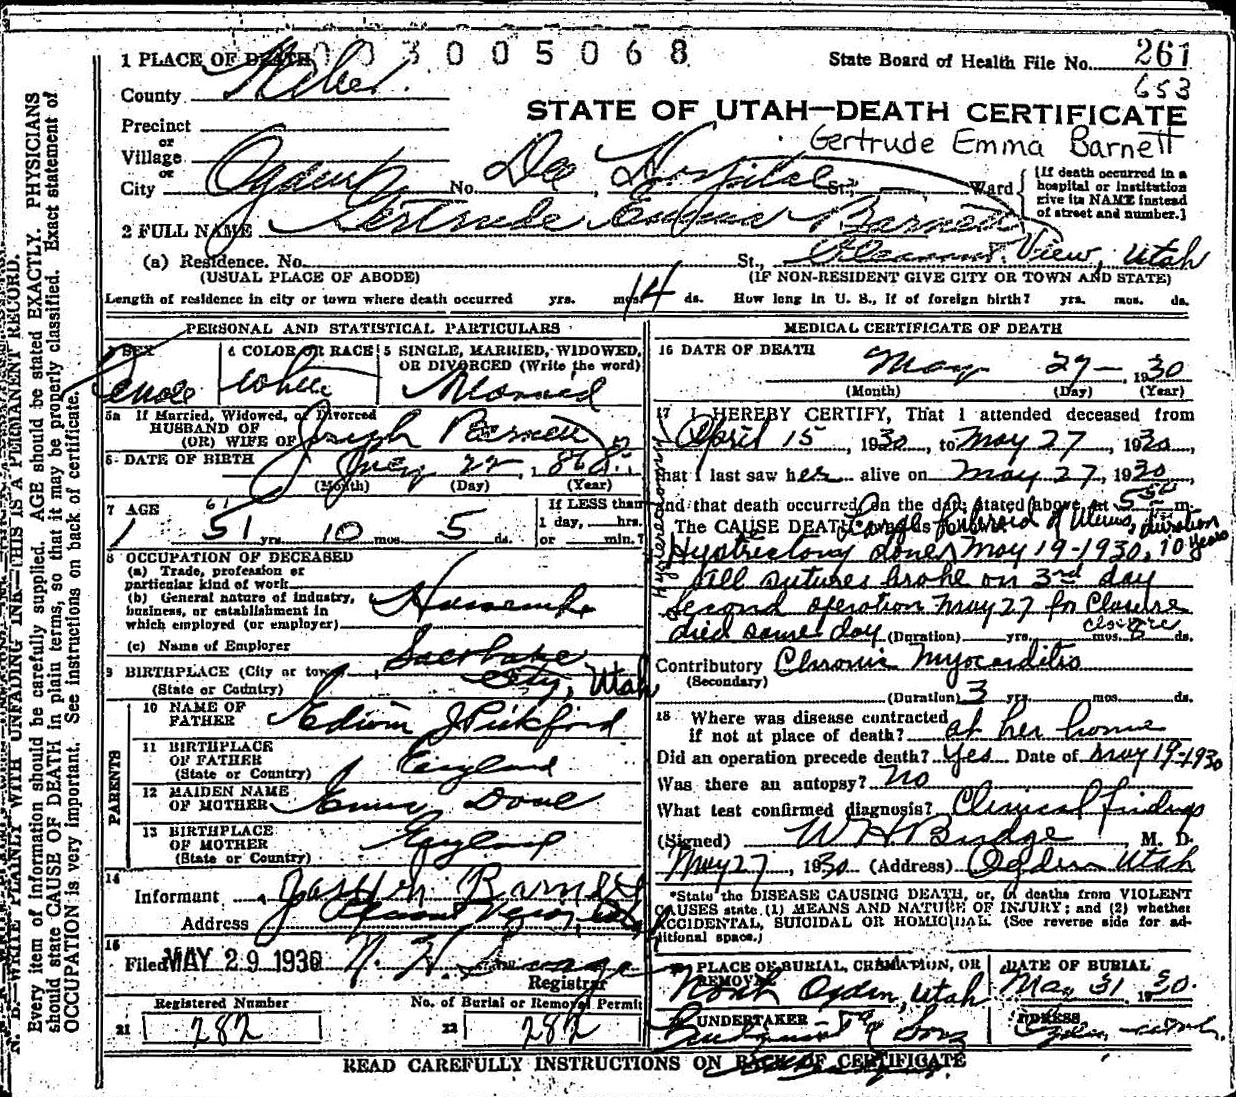 003005068
1 PLACE OF DEATH
State Board of Health File No. 261
653
County Weber.
STATE OF UTAH—DEATH CERTIFICATE
Precinct
or
Gertrude Emma Barnett
Village
or
City Ogden No. Dee Hospital St., Ward
[If death occurred in a
hospital or institution
give its NAME instead
of street and number.]
2 FULL NAME Gertrude Barnett
(a) Residence. No. St., Pleasant View, Utah
(USUAL PLACE OF ABODE) (IF NON-RESIDENT GIVE CITY OR TOWN AND STATE)
Length of residence in city or town where death occurred yrs. mos. 14 ds. How long in U. S., if of foreign birth? yrs. mos. ds.
PERSONAL AND STATISTICAL PARTICULARS
3 SEX 4 COLOR OR RACE 5 SINGLE, MARRIED, WIDOWED,
OR DIVORCED (Write the word)
Female White Married
5a If Married, Widowed, or Divorced
HUSBAND OF
(OR) WIFE OF Joseph Barnett
6 DATE OF BIRTH July 22, 868
(Month) (Day) (Year)
7 AGE 61
51 yrs. 10 mos. 5 ds.
If LESS than
1 day, hrs.
or min.?
8 OCCUPATION OF DECEASED
(a) Trade, profession or
particular kind of work
(b) General nature of industry,
business, or establishment in
which employed (or employer) Housewife
(c) Name of Employer
9 BIRTHPLACE (City or town) Salt Lake
City, Utah
(State or Country)
PARENTS
10 NAME OF
FATHER Edwin J Pickford
11 BIRTHPLACE
OF FATHER England
(State or Country)
12 MAIDEN NAME
OF MOTHER Emma Dove
13 BIRTHPLACE
OF MOTHER England
(State or Country)
14
Informant Joseph Barnett
Address Pleasant View, Utah
15
Filed MAY 29 1930 N. H. Savage
Registrar
Registered Number No. of Burial or Removal Permit
21 282 22 282
MEDICAL CERTIFICATE OF DEATH
16 DATE OF DEATH
May 27— 1930
(Month) (Day) (Year)
17 I HEREBY CERTIFY, That I attended deceased from
April 15, 1930, to May 27, 1930
that I last saw her alive on May 27, 1930
and that death occurred, on the date stated above, at 5 m.
The CAUSE DEATH was as follows: Large Fibroid of Uterus, duration
10 years
Hystrectomy done May 19-1930,
Hysterectomy
all sutures broke on 3rd day
second operation May 27 for closure
closure
died same day (Duration) yrs. mos. 8 ds.
Contributory Chronic Myocarditis
(Secondary)
(Duration) 3 yrs. mos. ds.
18 Where was disease contracted
if not at place of death? at her home
Did an operation precede death? Yes Date of May 19-1930
Was there an autopsy? No
What test confirmed diagnosis? Clinical findings
(Signed) W H Budge M. D.
May 27, 1930 (Address) Ogden Utah
*State the DISEASE CAUSING DEATH, or, in deaths from VIOLENT
CAUSES state (1) MEANS AND NATURE OF INJURY; and (2) whether
ACCIDENTAL, SUICIDAL OR HOMICIDAL. (See reverse side for ad-
ditional space.)
19 PLACE OF BURIAL, CREMATION, OR
REMOVAL
North Ogden, Utah
DATE OF BURIAL
May 31, 1930.
20 UNDERTAKER
Lindquist & Sons
ADDRESS
Ogden Utah
READ CAREFULLY INSTRUCTIONS ON BACK OF CERTIFICATE
N. B.—WRITE PLAINLY WITH UNFADING INK—THIS IS A PERMANENT RECORD.
Every item of information should be carefully supplied. AGE should be stated EXACTLY. PHYSICIANS
should state CAUSE OF DEATH in plain terms, so that it may be properly classified. Exact statement of
OCCUPATION is very important. See instructions on back of certificate.